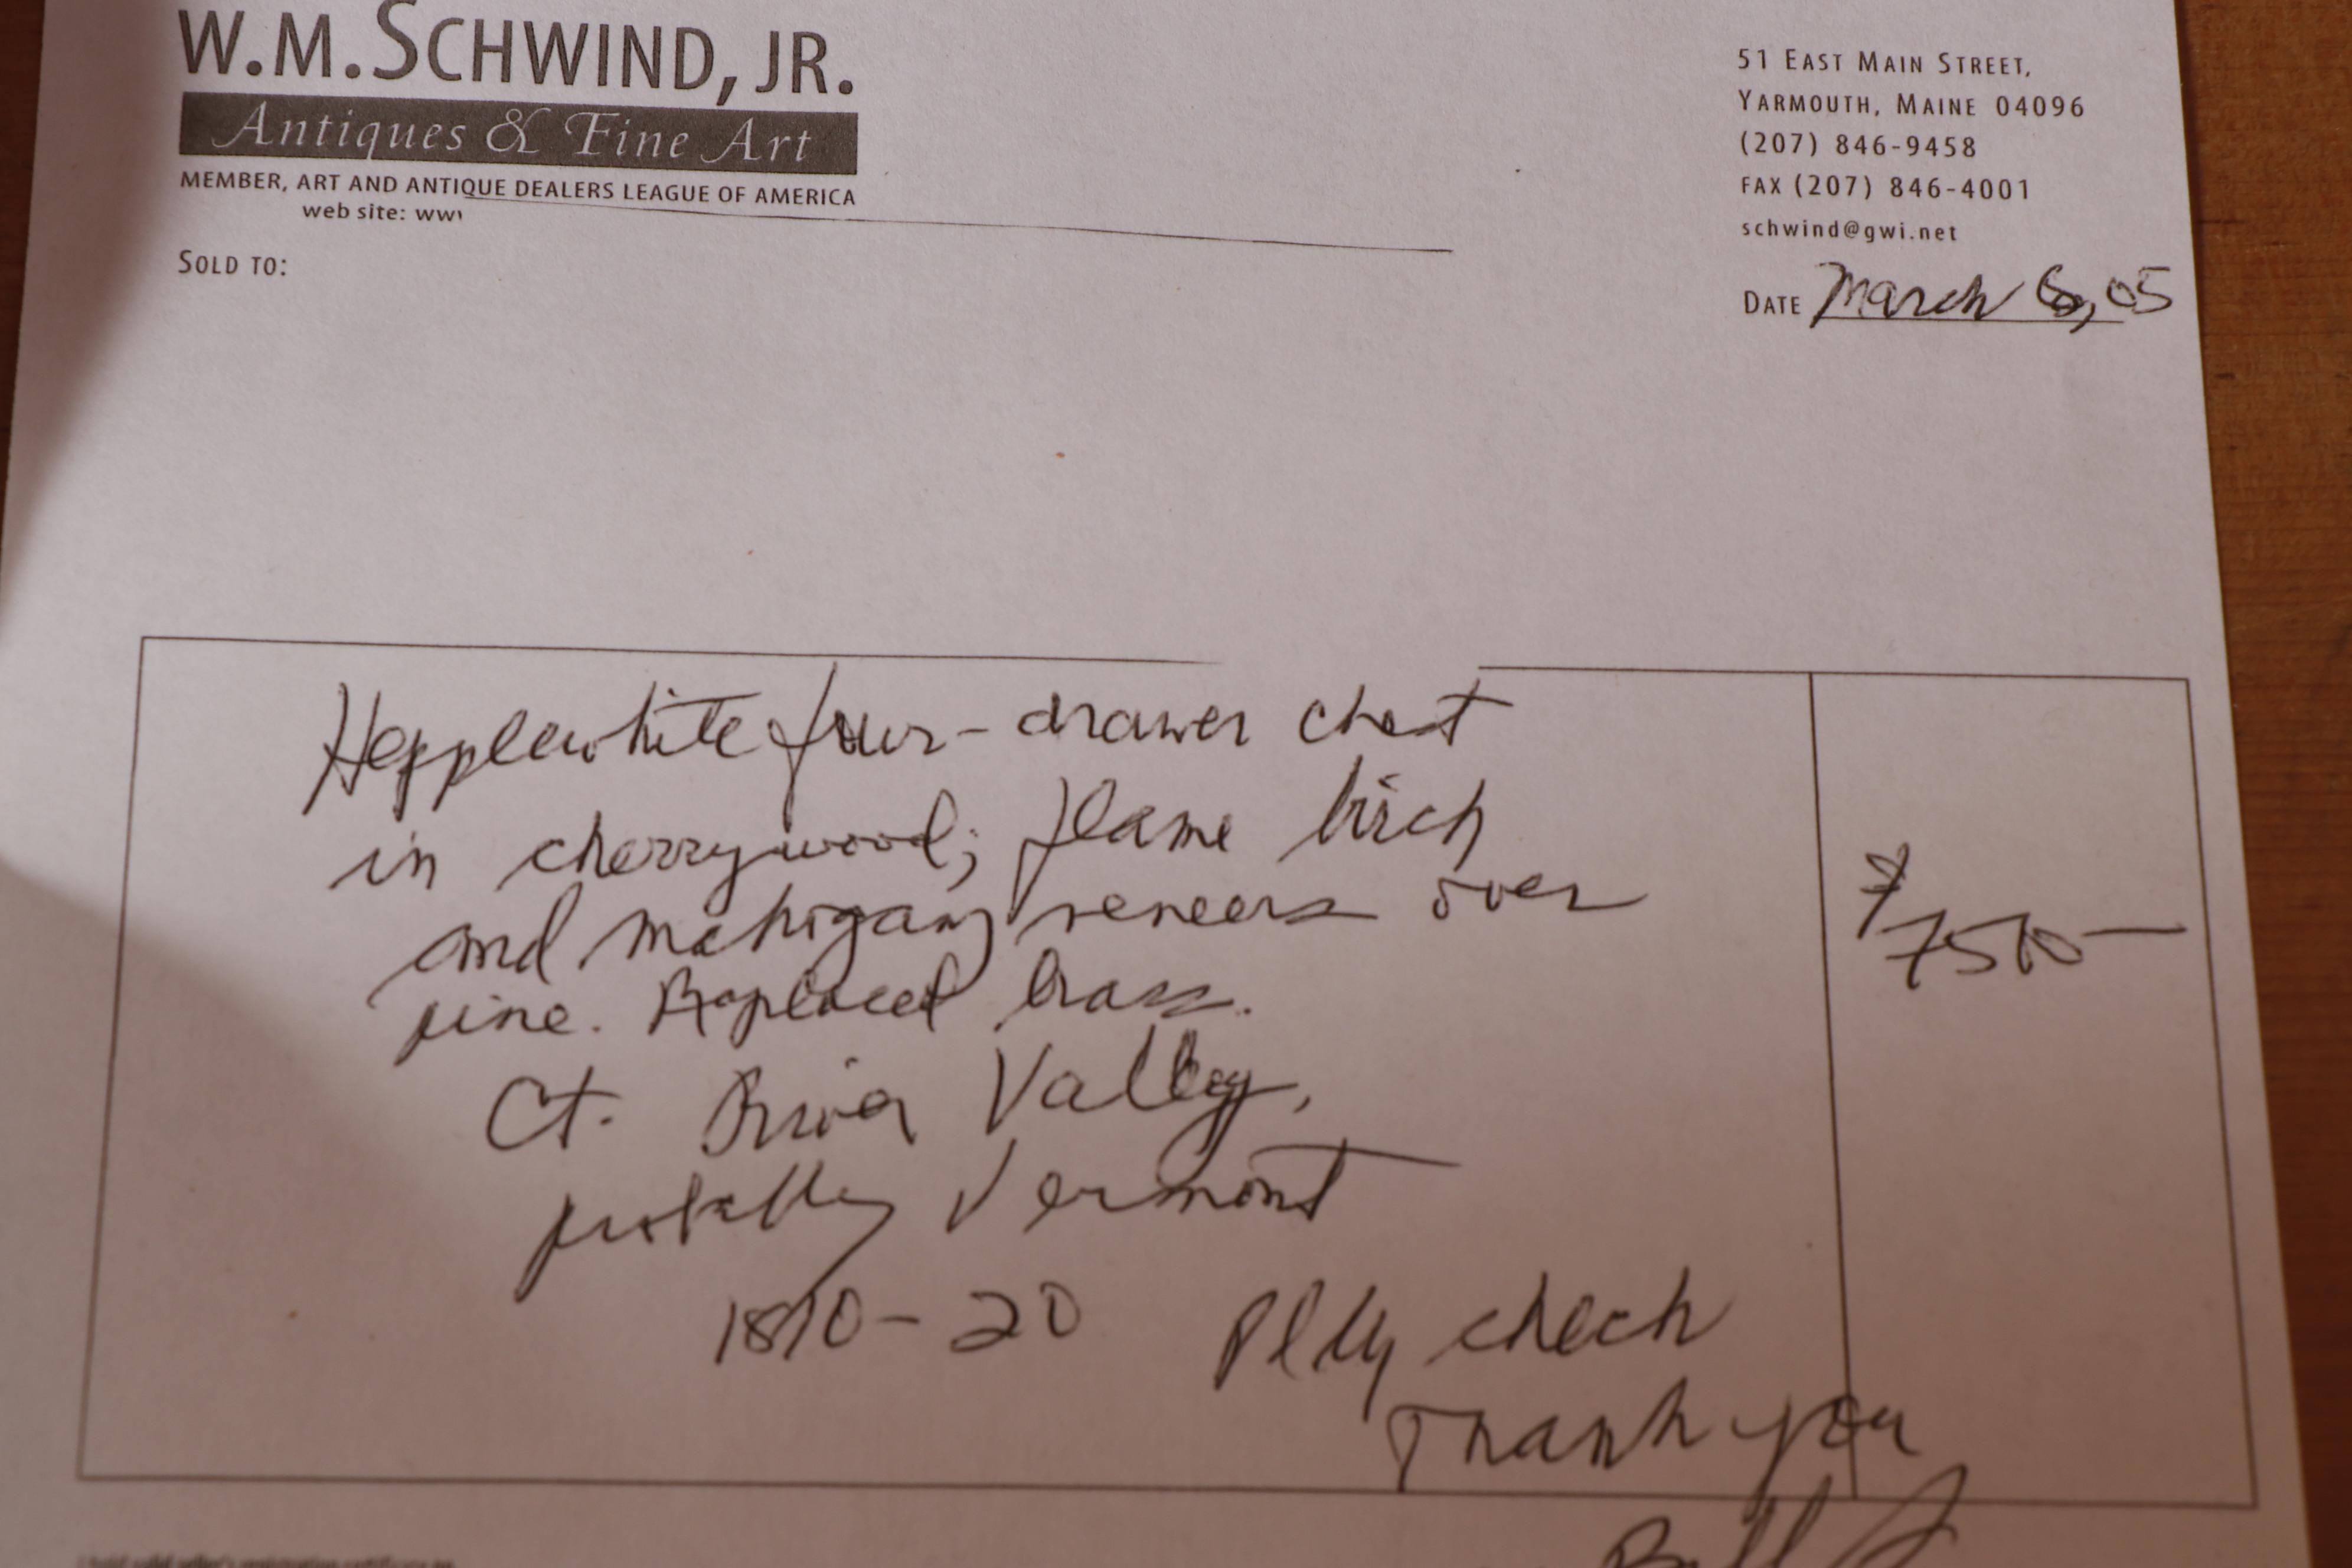 W.M. SCHWIND, JR.
Antiques & Fine Art
MEMBER, ART AND ANTIQUE DEALERS LEAGUE OF AMERICA
web site: ww
51 EAST MAIN STREET,
YARMOUTH, MAINE 04096
(207) 846-9458
FAX (207) 846-4001
schwind@gwi.net
SOLD TO:
DATE March 6, 05
Hepplewhite four-drawer chest
in cherrywood; flame birch
and mahogany veneers over
pine. Replaced brass.
$7500-
Ct. River Valley,
probably Vermont
1810-20
Pd by check
Thank you
Bill